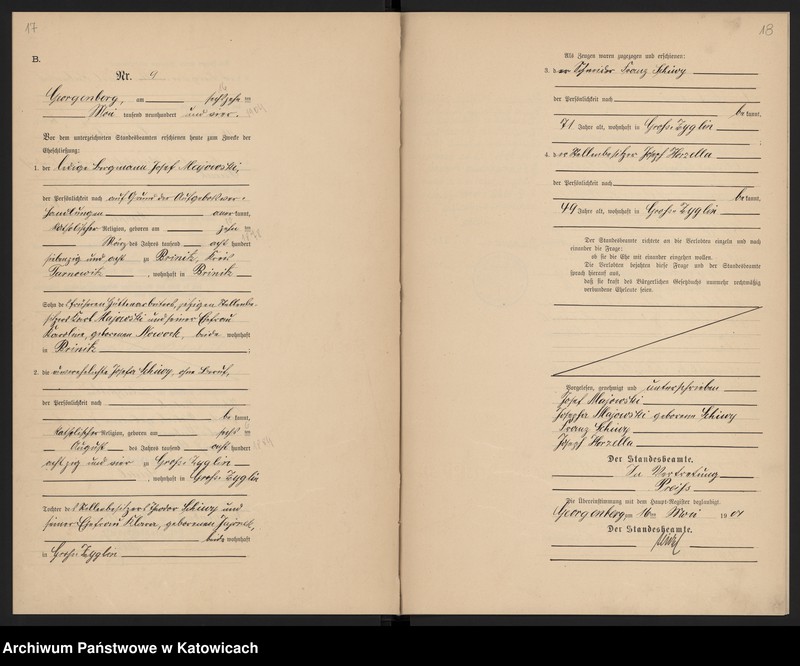 17
B.
Nr. 9
Georgenberg, am sechszehn ten
Mai tausend neunhundert und vier.
Vor dem unterzeichneten Standesbeamten erschienen heute zum Zwecke der
Eheschließung:
1. der ledige Bergmann Josef Majowski,
der Persönlichkeit nach auf Grund der Aufgebotsver-
handlungen anerkannt,
katholischer Religion, geboren am zehn ten
März des Jahres tausend acht hundert
siebenzig und acht zu Brinitz, Kreis
Tarnowitz, wohnhaft in Brinitz
Sohn des früheren Hüttenarbeiters, jetzigen Stellenbe-
sitzers Karl Majowski und seiner Ehefrau
Karoline, geborenen Nowock, beide wohnhaft
in Brinitz;
2. die unverehelichte Josefa Schiwy, ohne Beruf,
der Persönlichkeit nach
be kannt,
katholischer Religion, geboren am sechs ten
August des Jahres tausend acht hundert
achtzig und vier zu Groß Zyglin
, wohnhaft in Groß Zyglin
Tochter des Stellenbesitzers Theodor Schiwy und
seiner Ehefrau Klara, geborenen
beide wohnhaft
in Groß Zyglin
18
Als Zeugen waren zugezogen und erschienen:
3. der Schneider Franz Schiwy
der Persönlichkeit nach
be kannt,
71 Jahre alt, wohnhaft in Groß Zyglin
;
4. der Stellenbesitzer Josef Herzella
der Persönlichkeit nach
be kannt,
49 Jahre alt, wohnhaft in Groß Zyglin
Der Standesbeamte richtete an die Verlobten einzeln und nach
einander die Frage:
ob sie die Ehe mit einander eingehen wollen.
Die Verlobten bejahten diese Frage und der Standesbeamte
sprach hierauf aus,
daß sie kraft des Bürgerlichen Gesetzbuchs nunmehr rechtmäßig
verbundene Eheleute seien.
Vorgelesen, genehmigt und unterschrieben
Josef Majowski
Josefa Majowski geborene Schiwy
Franz Schiwy
Josef Herzella
Der Standesbeamte.
In Vertretung
Preiß
Die Übereinstimmung mit dem Haupt-Register beglaubigt.
Georgenberg, am 16ten Mai 1904
Der Standesbeamte.
Archiwum Państwowe w Katowicach